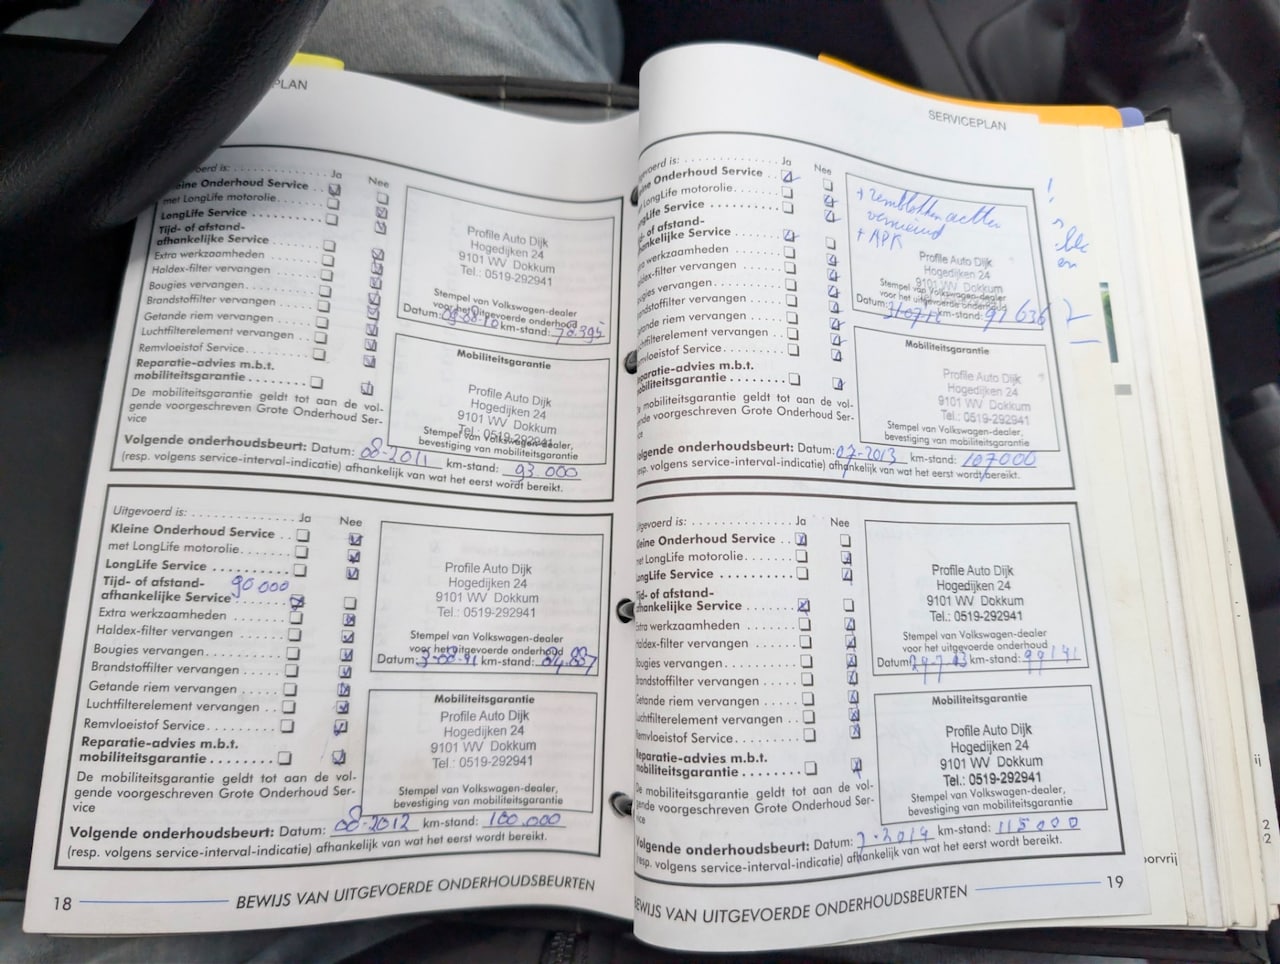 PLAN
oerd is:
Ja
Nee
eine Onderhoud Service
met LongLife motorolie
LongLife Service
Tijd- of afstand-
afhankelijke Service
Extra werkzaamheden
Haldex-filter vervangen
Bougies vervangen
Brandstoffilter vervangen
Getande riem vervangen
Luchtfilterelement vervangen
Remvloeistof Service
Reparatie-advies m.b.t.
mobiliteitsgarantie
De mobiliteitsgarantie geldt tot aan de vol-
gende voorgeschreven Grote Onderhoud Ser-
vice
Profile Auto Dijk
Hogedijken 24
9101 WV Dokkum
Tel.: 0519-292941
Stempel van Volkswagen-dealer
voor het uitgevoerde onderhoud
Datum: km-stand: 78.395
Mobiliteitsgarantie
Profile Auto Dijk
Hogedijken 24
9101 WV Dokkum
Tel.: 0519-292941
Stempel van Volkswagen-dealer,
bevestiging van mobiliteitsgarantie
Volgende onderhoudsbeurt: Datum: 08-2011 km-stand: 93.000
(resp. volgens service-interval-indicatie) afhankelijk van wat het eerst wordt bereikt.
Uitgevoerd is:
Ja
Nee
Kleine Onderhoud Service
met LongLife motorolie
LongLife Service
Tijd- of afstand- 90.000
afhankelijke Service
Extra werkzaamheden
Haldex-filter vervangen
Bougies vervangen
Brandstoffilter vervangen
Getande riem vervangen
Luchtfilterelement vervangen
Remvloeistof Service
Reparatie-advies m.b.t.
mobiliteitsgarantie
De mobiliteitsgarantie geldt tot aan de vol-
gende voorgeschreven Grote Onderhoud Ser-
vice
Profile Auto Dijk
Hogedijken 24
9101 WV Dokkum
Tel.: 0519-292941
Stempel van Volkswagen-dealer
voor het uitgevoerde onderhoud
Datum: km-stand:
Mobiliteitsgarantie
Profile Auto Dijk
Hogedijken 24
9101 WV Dokkum
Tel.: 0519-292941
Stempel van Volkswagen-dealer,
bevestiging van mobiliteitsgarantie
Volgende onderhoudsbeurt: Datum: 08-2012 km-stand: 100.000
(resp. volgens service-interval-indicatie) afhankelijk van wat het eerst wordt bereikt.
18
BEWIJS VAN UITGEVOERDE ONDERHOUDSBEURTEN
SERVICEPLAN
gevoerd is:
Ja
Nee
eine Onderhoud Service
et LongLife motorolie
ngLife Service
d- of afstand-
hankelijke Service
tra werkzaamheden
aldex-filter vervangen
ougies vervangen
randstoffilter vervangen
etande riem vervangen
uchtfilterelement vervangen
emvloeistof Service
eparatie-advies m.b.t.
obiliteitsgarantie
mobiliteitsgarantie geldt tot aan de vol-
ende voorgeschreven Grote Onderhoud Ser-
ice
+ remblokken achter
vernieuwd
+ APK
Profile Auto Dijk
Hogedijken 24
9101 WV Dokkum
Stempel van Volkswagen-dealer
voor het uitgevoerde
Datum: km-stand: 97636
Mobiliteitsgarantie
Profile Auto Dijk
Hogedijken 24
9101 WV Dokkum
Tel.: 0519-292941
Stempel van Volkswagen-dealer,
bevestiging van mobiliteitsgarantie
olgende onderhoudsbeurt: Datum: 07-2013 km-stand: 107000
(resp. volgens service-interval-indicatie) afhankelijk van wat het eerst wordt bereikt.
Uitgevoerd is:
Ja
Nee
leine Onderhoud Service
met LongLife motorolie
LongLife Service
ijd- of afstand-
fhankelijke Service
xtra werkzaamheden
Haldex-filter vervangen
Bougies vervangen
Brandstoffilter vervangen
Getande riem vervangen
Luchtfilterelement vervangen
Remvloeistof Service
Reparatie-advies m.b.t.
mobiliteitsgarantie
De mobiliteitsgarantie geldt tot aan de vol-
gende voorgeschreven Grote Onderhoud Ser-
ice
Profile Auto Dijk
Hogedijken 24
9101 WV Dokkum
Tel.: 0519-292941
Stempel van Volkswagen-dealer
voor het uitgevoerde onderhoud
Datum: km-stand: 99141
Mobiliteitsgarantie
Profile Auto Dijk
Hogedijken 24
9101 WV Dokkum
Tel.: 0519-292941
Stempel van Volkswagen-dealer,
bevestiging van mobiliteitsgarantie
Volgende onderhoudsbeurt: Datum: 7-2014 km-stand: 115000
(resp. volgens service-interval-indicatie) afhankelijk van wat het eerst wordt bereikt.
BEWIJS VAN UITGEVOERDE ONDERHOUDSBEURTEN
19
orvrij